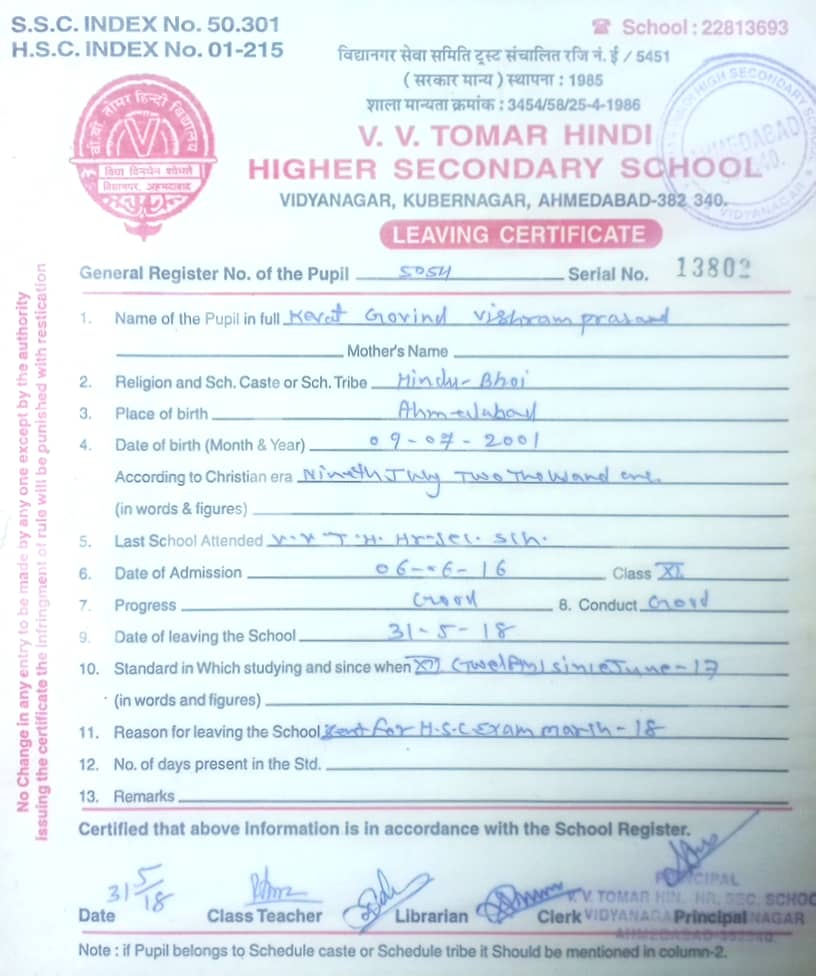 S.S.C. INDEX No. 50.301
H.S.C. INDEX No. 01-215
☎ School : 22813693
विद्यानगर सेवा समिति ट्रस्ट संचालित रजि नं. ई / 5451
( सरकार मान्य ) स्थापना : 1985
शाला मान्यता क्रमांक : 3454/58/25-4-1986
V. V. TOMAR HINDI
HIGHER SECONDARY SCHOOL
VIDYANAGAR, KUBERNAGAR, AHMEDABAD-382 340.
LEAVING CERTIFICATE
General Register No. of the Pupil 5054 Serial No. 13802
1. Name of the Pupil in full Kevat Govind Vishram prasad
Mother's Name
2. Religion and Sch. Caste or Sch. Tribe Hindu-Bhoi
3. Place of birth Ahmedabad
4. Date of birth (Month & Year) 09-07-2001
According to Christian era Nineth July Two Thousand one.
(in words & figures)
5. Last School Attended V.V.T.H. Hr-sec. sch.
6. Date of Admission 06-06-16 Class XI
7. Progress Good 8. Conduct Good
9. Date of leaving the School 31-5-18
10. Standard in Which studying and since when XII (Twelfth) since June-17
(in words and figures)
11. Reason for leaving the School for H.S.C Exam march-18
12. No. of days present in the Std.
13. Remarks
Certified that above Information is in accordance with the School Register.
31/5/18
PRINCIPAL
V. V. TOMAR HIN. HR. SEC. SCHOO
Date Class Teacher Librarian Clerk Principal
VIDYANAGA NAGAR
AHMEDABAD-382340.
Note : if Pupil belongs to Schedule caste or Schedule tribe it Should be mentioned in column-2.
No Change in any entry to be made by any one except by the authority
Issuing the certificate the Infringment of rule will be punished with restication
वी. वी. तोमर हिन्दी विद्यालय
विद्या विनयेन शोभते
विद्यानगर, अहमदाबाद
HIGH SECONDARY SCHOOL
AHMEDABAD
VIDYANAGAR